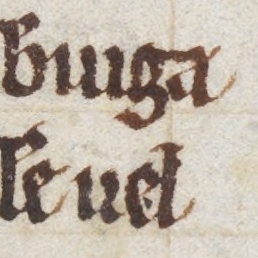 buiga
le uel